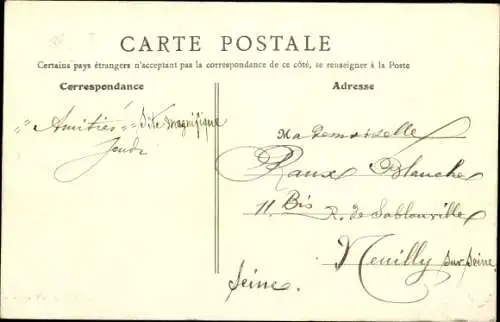 CARTE POSTALE
Certains pays étrangers n'acceptant pas la correspondance de ce côté, se renseigner à la Poste
Correspondance
Adresse
"Amitiés" Site magnifique
Jeudi
Mademoiselle
Raux Blanche
11 Bis R. de Sablonville
Neuilly sur Seine
Seine.